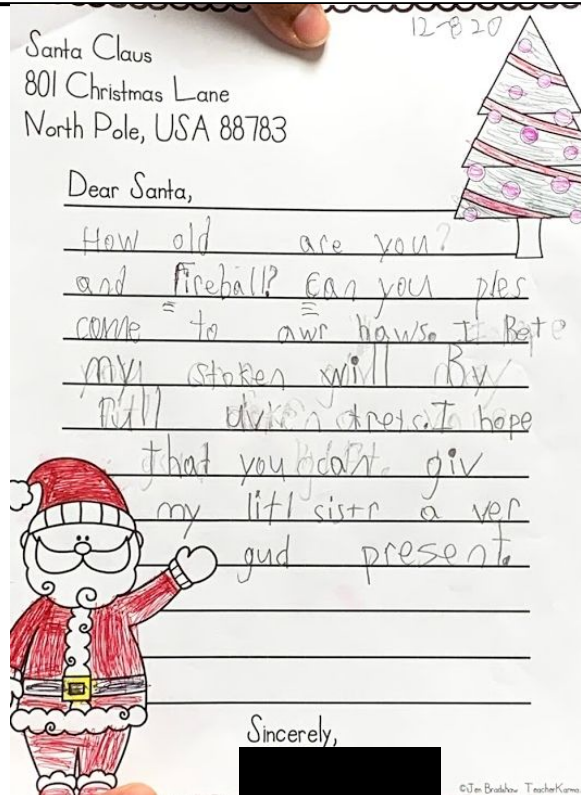 12-8 20
Santa Claus
801 Christmas Lane
North Pole, USA 88783
Dear Santa,
How old are you?
and Fireball? Can you ples
come to awr haws. I Bet
my stoken will By
full uv trets. I hope
that you dont giv
my litl sistr a ver
gud present.
Sincerely,
©Jen Bradshaw TeacherKarma.